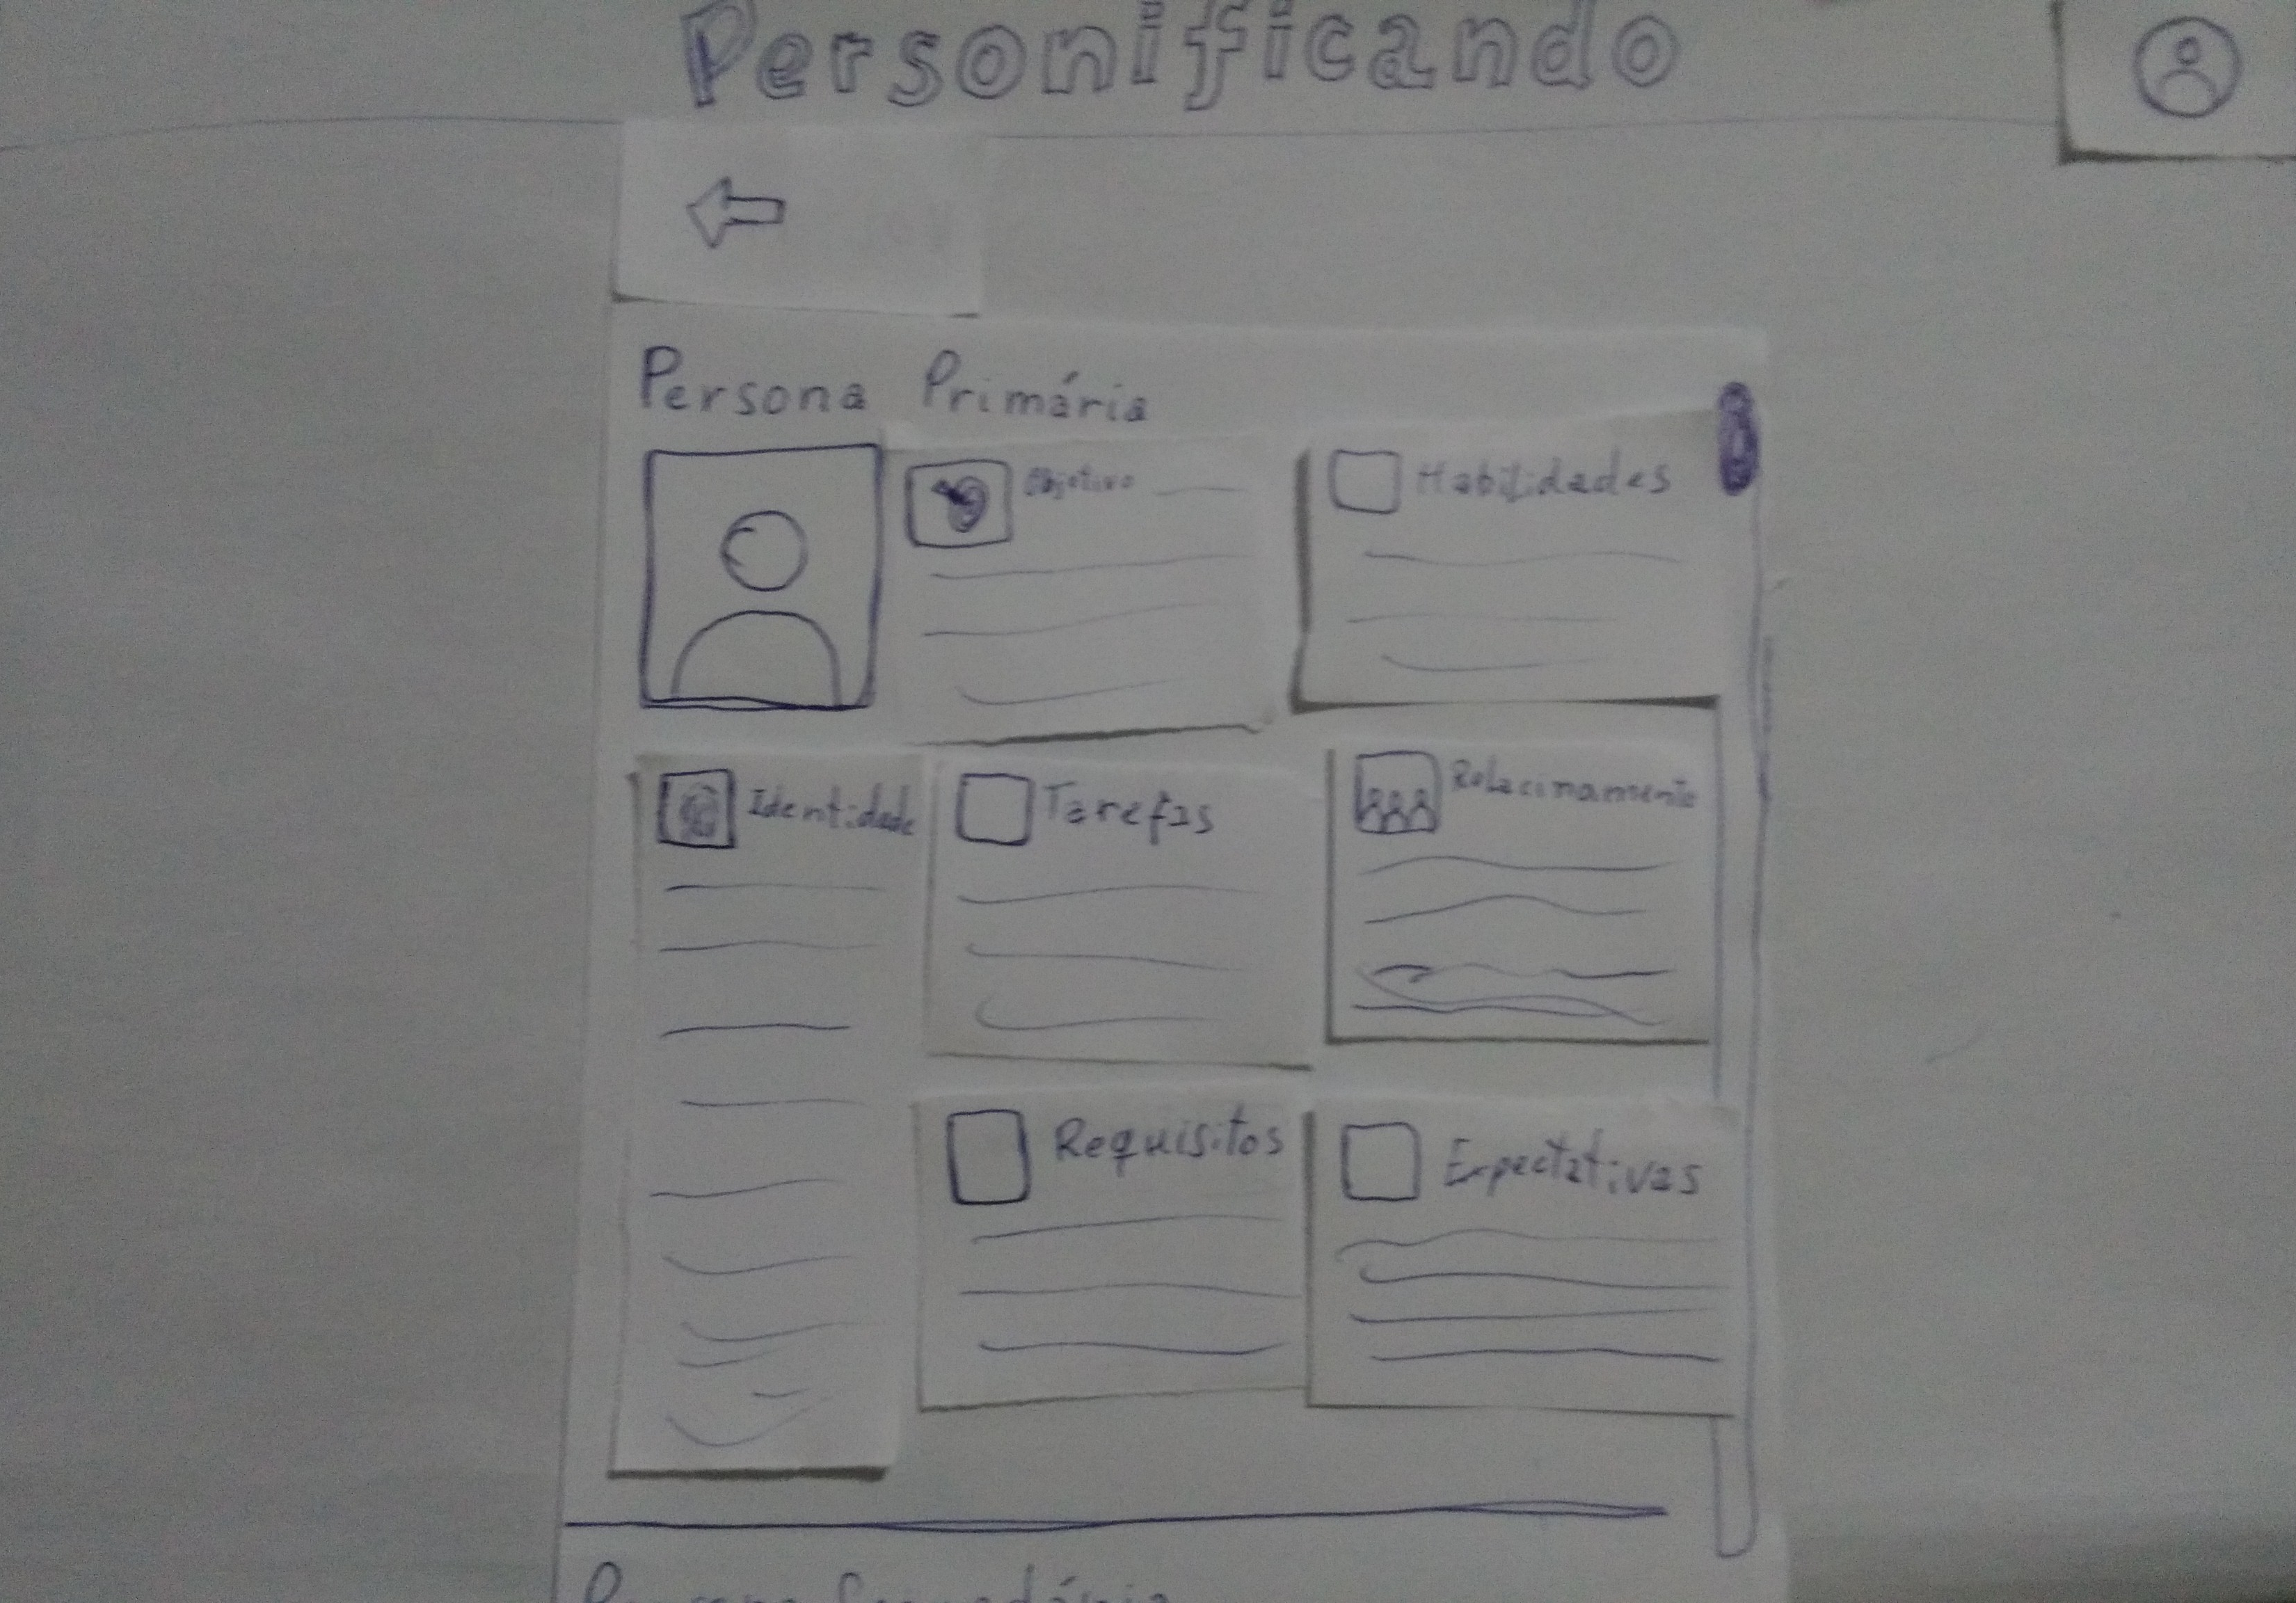 Personificando
Persona Primária
Objetivo
Habilidades
Identidade
Tarefas
Relacinamento
Requisitos
Expectativas